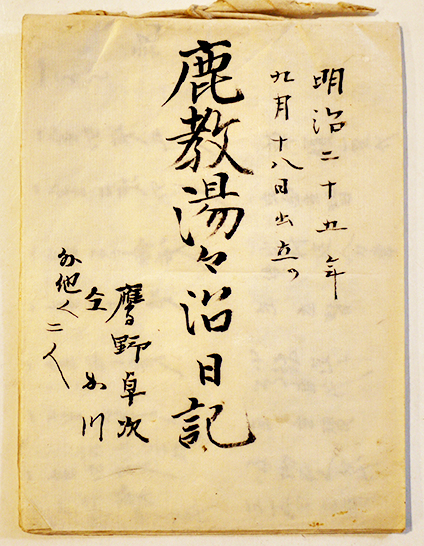 明治二十五年
九月十八日出立
鹿教湯々治日記
鷹野卓次
仝 川
外他 二人